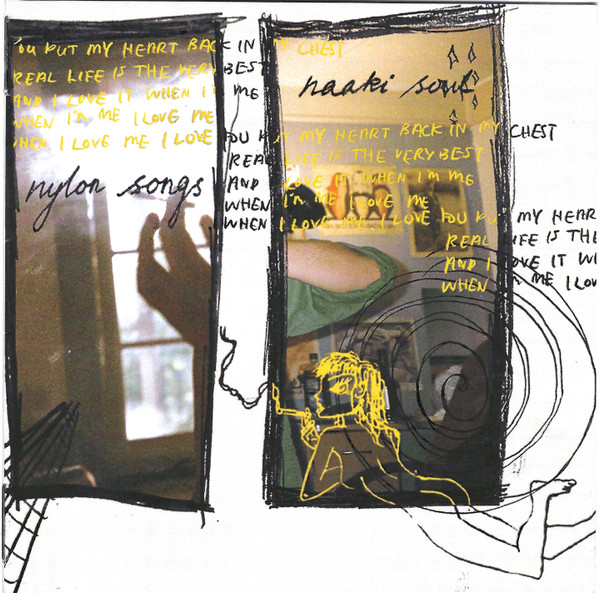 YOU PUT MY HEART BACK IN MY CHEST
REAL LIFE IS THE VERY BEST
AND I LOVE IT WHEN I'M ME
WHEN I'M ME I LOVE ME
WHEN I LOVE ME I LOVE YOU PUT MY HEART BACK IN MY CHEST
REAL LIFE IS THE VERY BEST
AND I LOVE IT WHEN I'M ME
WHEN I'M ME I LOVE ME
WHEN I LOVE ME I LOVE YOU PUT MY HEAR
REAL LIFE IS THE
AND I LOVE IT W
WHEN I'M ME I LOV
naaki soul
nylon songs